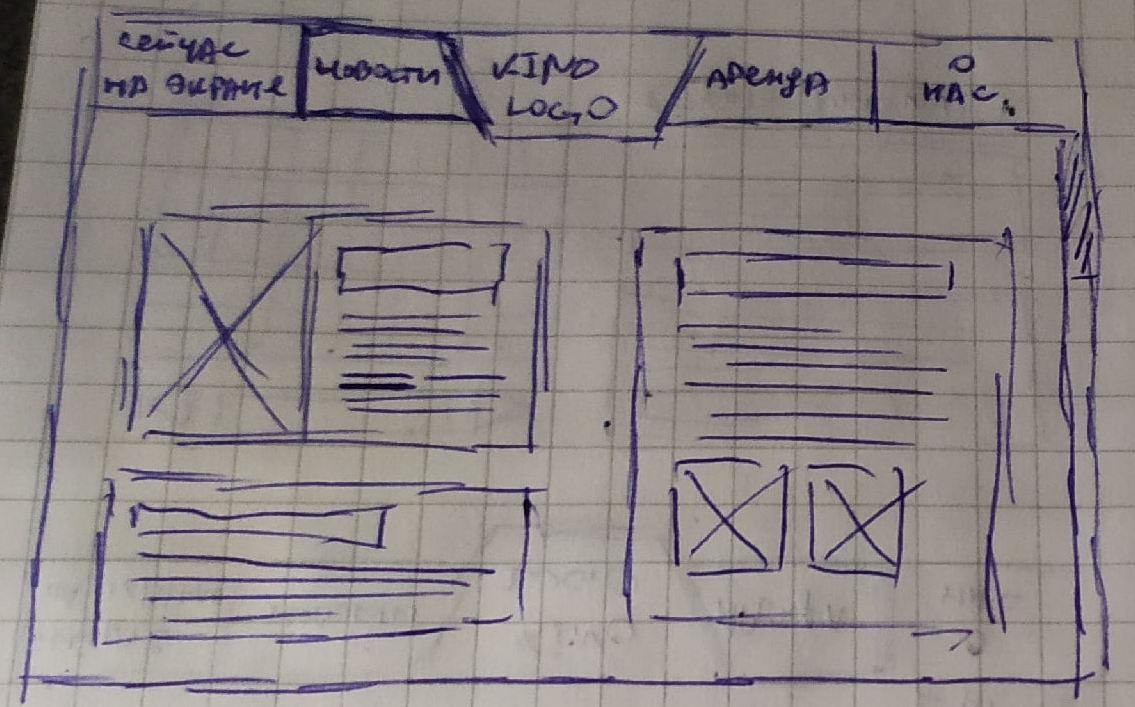 сейчас
на экране
новости
KINO
LOGO
аренда
о
нас.